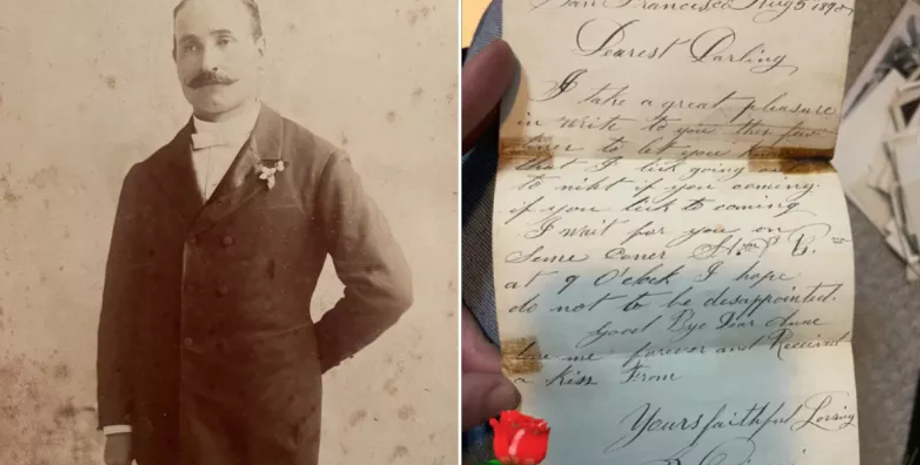 San Francisco Aug 5th 189
Dearest Darling
I take a great pleasure
in write to you ther few
to let you
that I lick going out
to niht if you coming.
if you lick to coming
I wait for you on
Same Coner St.
at 9 O'clock I hope
do not to be desappointed.
Good Bye Dear Anne
love me forever and Receive
a Kiss From
Yours faithful Loving